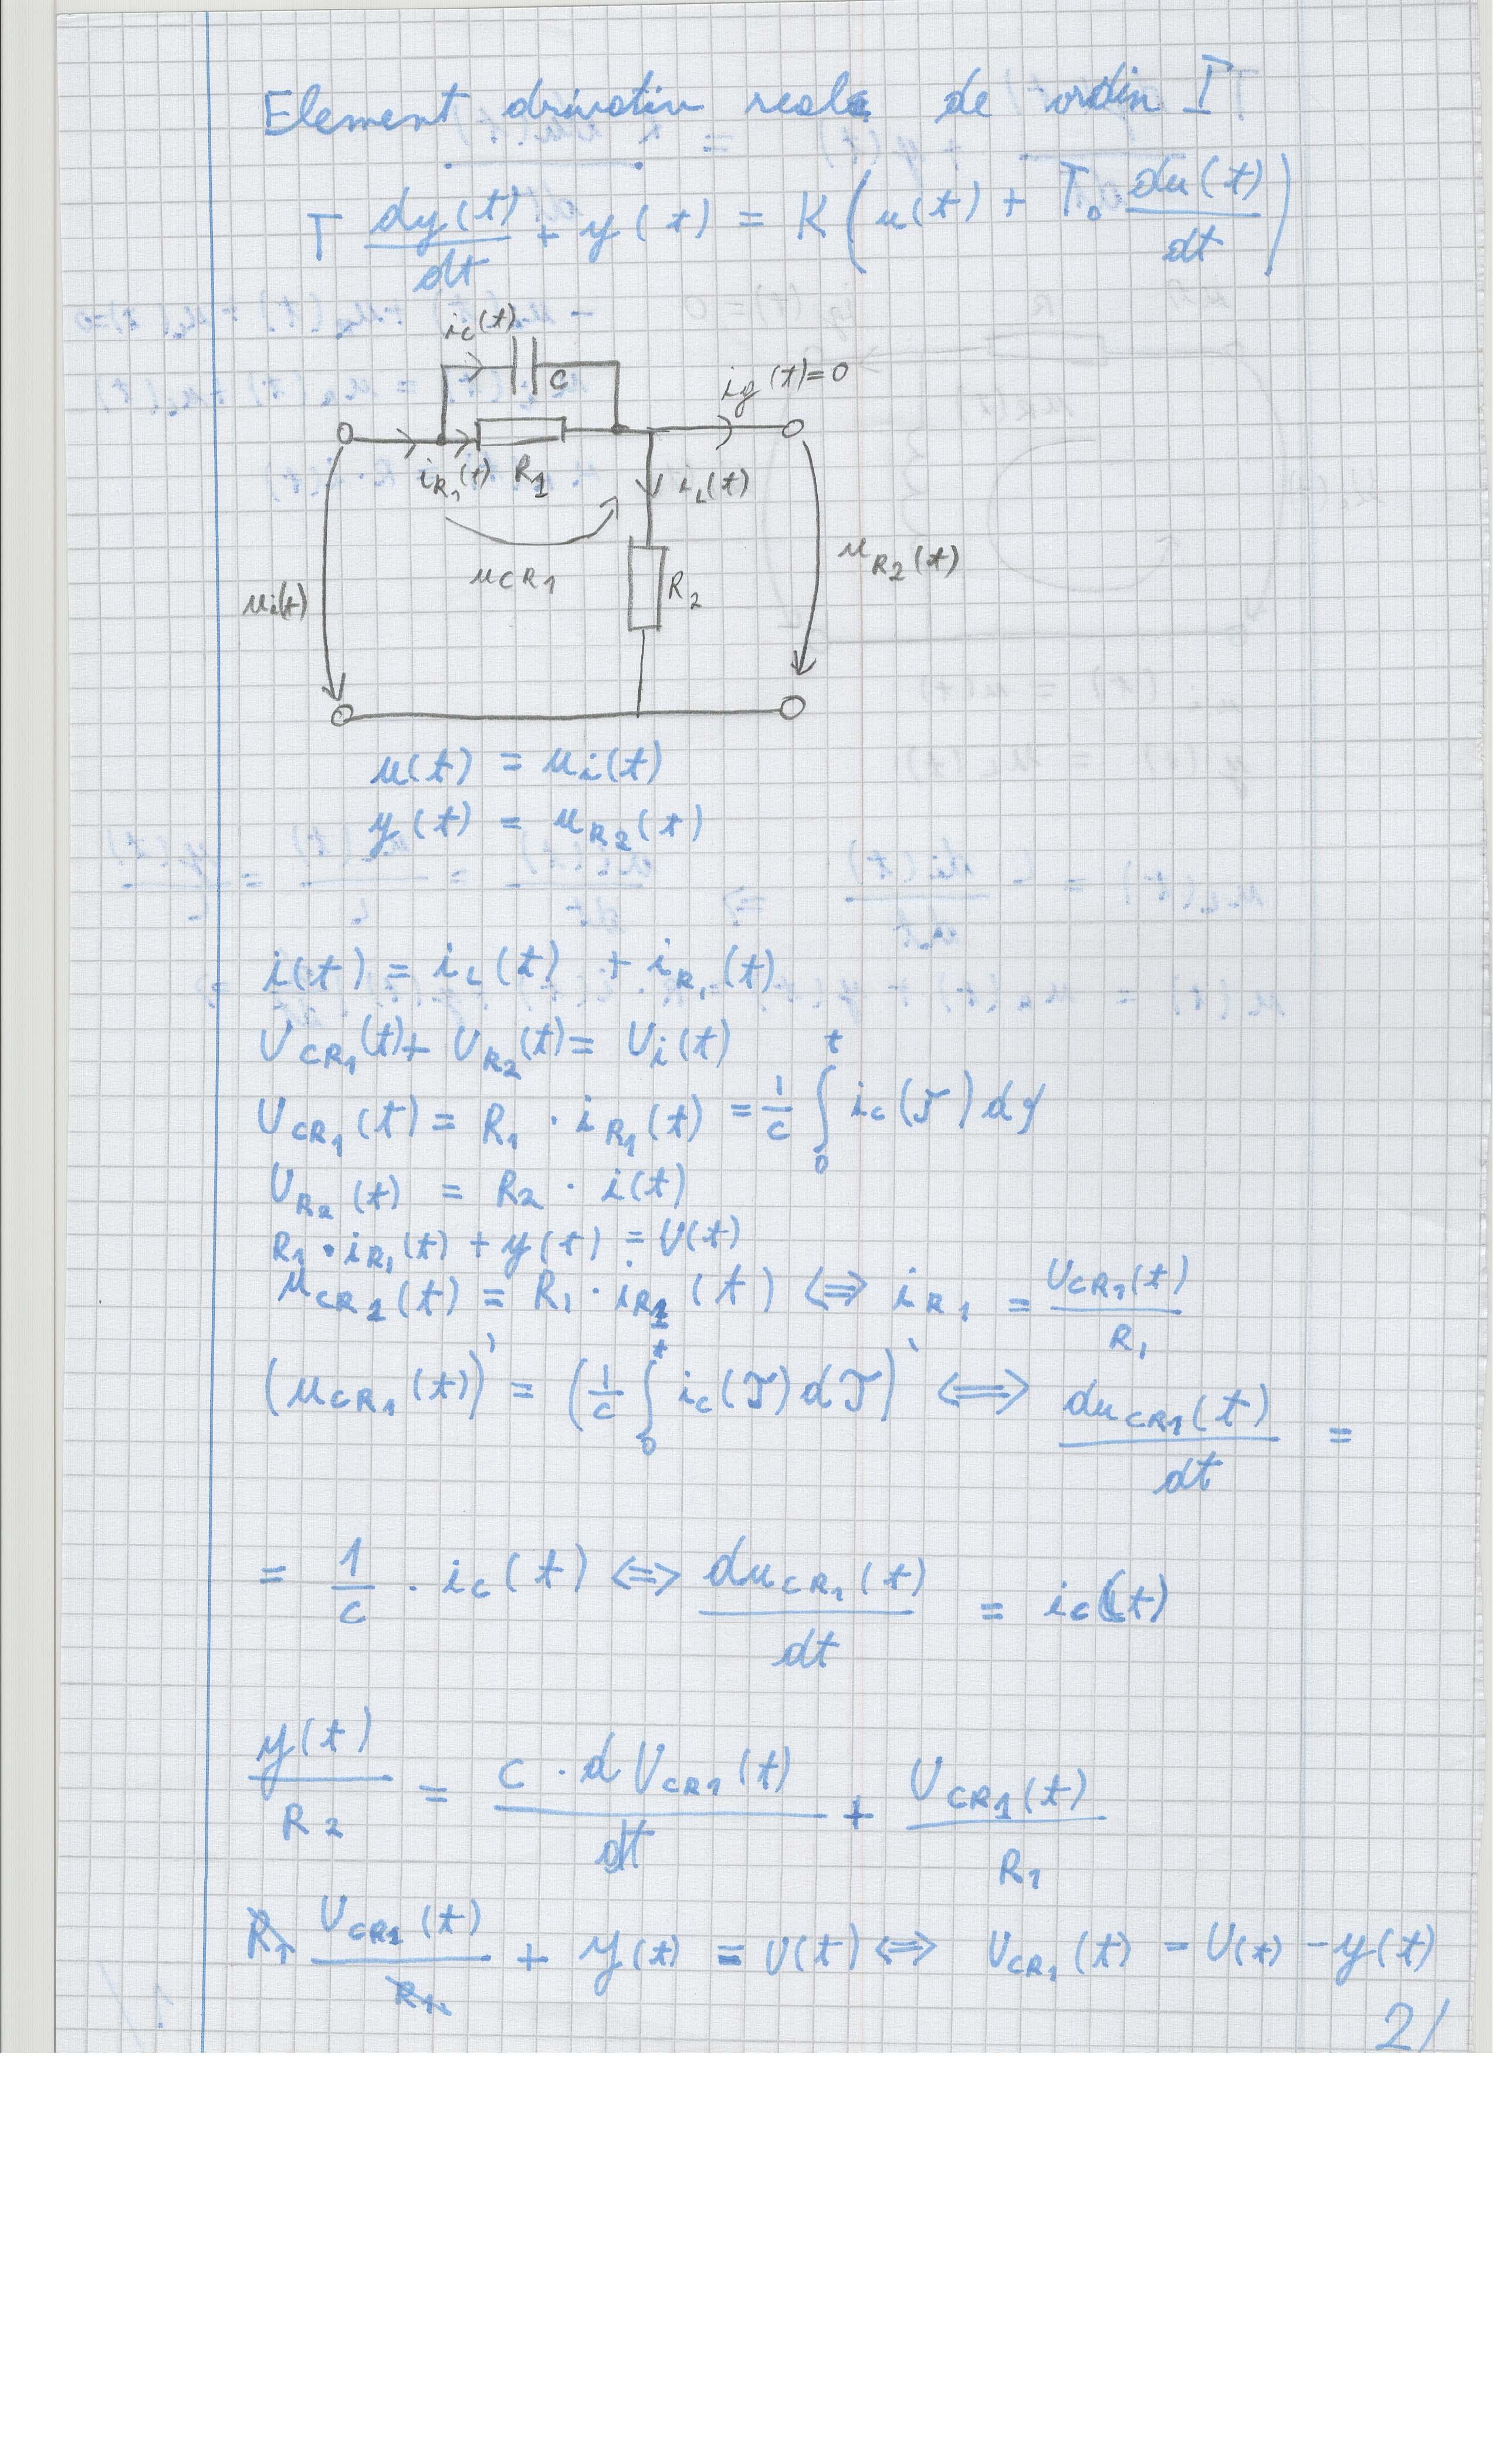 Element drivativ reale de ordin I
T dy(t)/dt + y(t) = K(u(t) + T₀ du(t)/dt)
i_C(t)
C
i_y(t)=0
i_R1(t) R1
i_L(t)
u_CR1
R2
u_R2(t)
u_i(t)
u(t) = u_i(t)
y(t) = u_R2(t)
i(t) = i_L(t) + i_R1(t)
U_CR1(t) + U_R2(t) = U_i(t)
U_CR1(t) = R1 · i_R1(t) = 1/C ∫₀ᵗ i_c(τ) dτ
U_R2(t) = R2 · i(t)
R1 · i_R1(t) + y(t) = U(t)
u_CR1(t) = R1 · i_R1(t) ⇔ i_R1 = U_CR1(t)/R1
(u_CR1(t))' = (1/C ∫₀ᵗ i_c(τ) dτ)' ⇔ du_CR1(t)/dt =
= 1/C · i_c(t) ⇔ du_CR1(t)/dt = i_c(t)
y(t)/R2 = C · dU_CR1(t)/dt + U_CR1(t)/R1
R1 U_CR1(t)/R1 + y(t) = U(t) ⇔ U_CR1(t) = U(t) - y(t)
2/